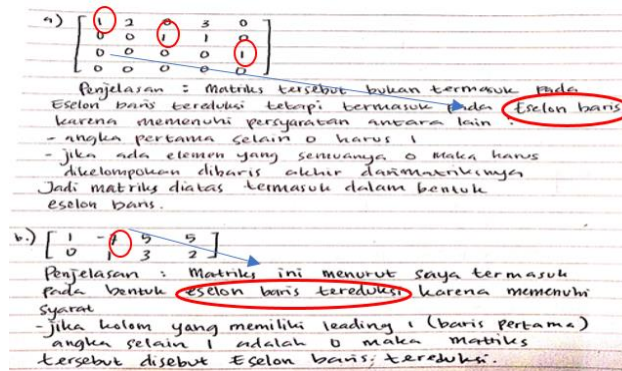 a) [ 1 2 0 3 0
0 0 1 1 0
0 0 0 0 1
0 0 0 0 0 ]
Penjelasan : Matriks tersebut bukan termasuk pada
Eselon baris tereduksi tetapi termasuk pada Eselon baris
karena memenuhi persyaratan antara lain :
- angka pertama selain 0 harus 1
- jika ada elemen yang semuanya 0 maka harus
dikelompokan dibaris akhir dari matriksnya
Jadi matriks diatas termasuk dalam bentuk
eselon baris.
b.) [ 1 -7 5 5
0 1 3 2 ]
Penjelasan : Matriks ini menurut saya termasuk
pada bentuk eselon baris tereduksi karena memenuhi
syarat
- jika kolom yang memiliki leading 1 (baris pertama)
angka selain 1 adalah 0 maka matriks
tersebut disebut Eselon baris; tereduksi.